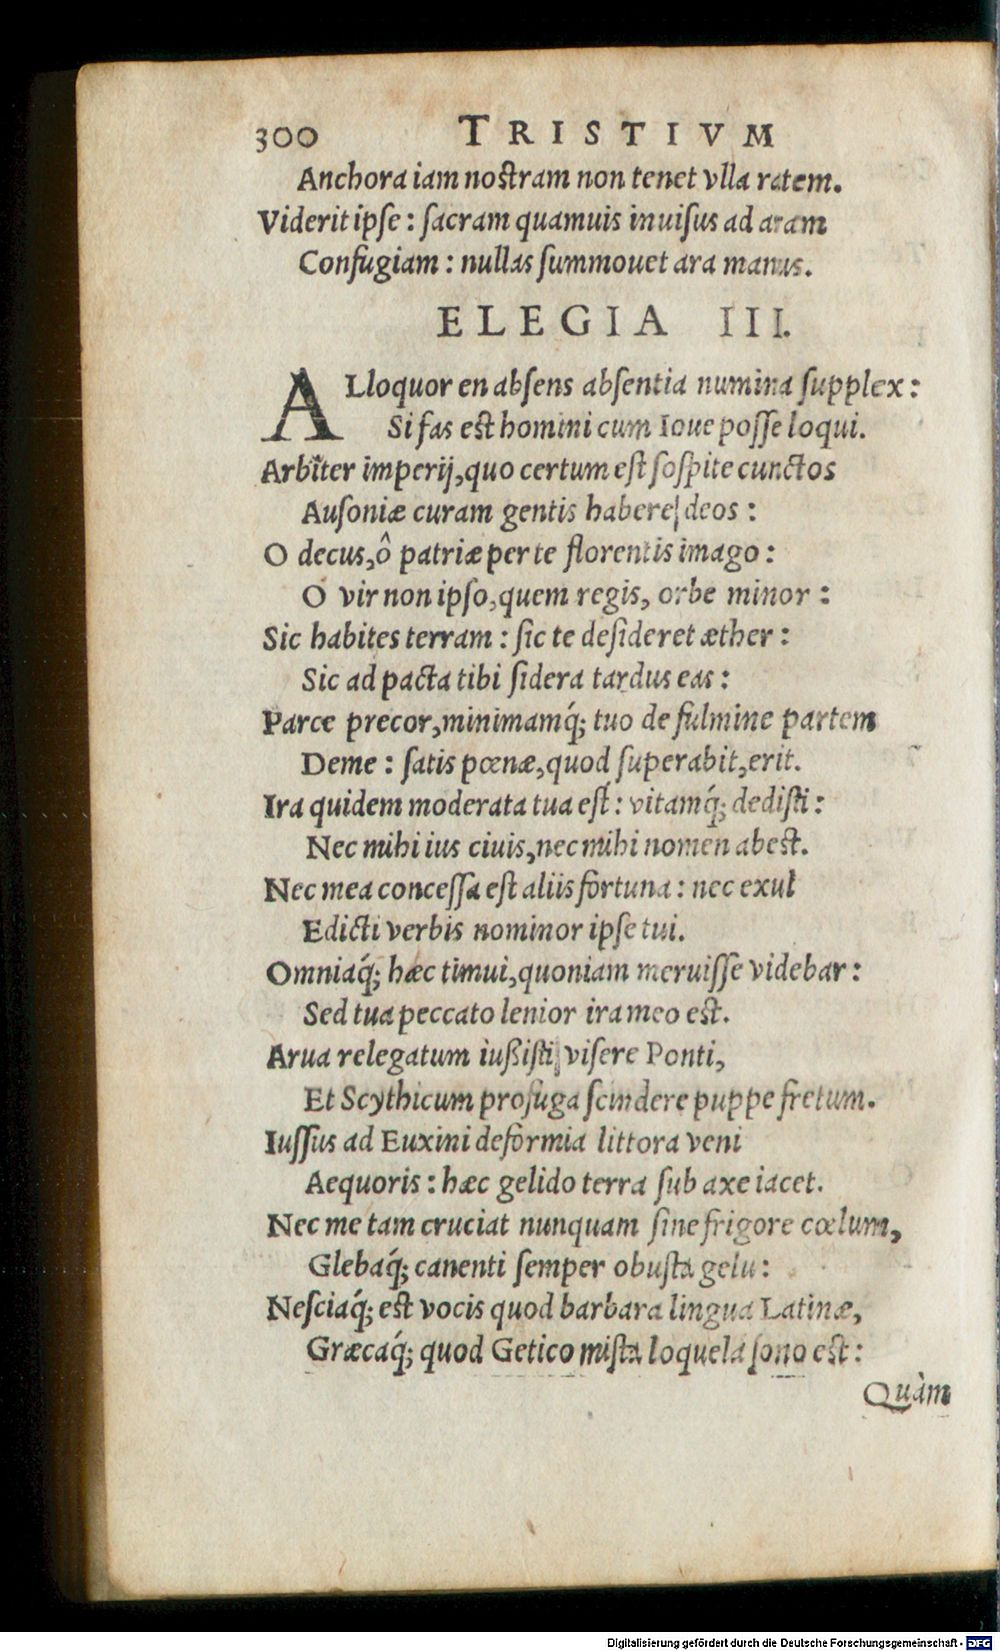 300 TRISTIVM
Anchora iam nostram non tenet vlla ratem.
Viderit ipse : sacram quamuis inuisus ad aram
Confugiam : nullas summouet ara manus.
ELEGIA III.
ALloquor en absens absentia numina supplex :
Si fas est homini cum Ioue posse loqui.
Arbiter imperij, quo certum est sospite cunctos
Ausoniæ curam gentis habere deos :
O decus, ô patriæ per te florentis imago :
O vir non ipso, quem regis, orbe minor :
Sic habites terram : sic te desideret æther :
Sic ad pacta tibi sidera tardus eas :
Parce precor, minimamq́; tuo de fulmine partem
Deme : satis pœnæ, quod superabit, erit.
Ira quidem moderata tua est : vitamq́; dedisti :
Nec mihi ius ciuis, nec mihi nomen abest.
Nec mea concessa est aliis fortuna : nec exul
Edicti verbis nominor ipse tui.
Omniaq́; hæc timui, quoniam meruisse videbar :
Sed tua peccato lenior ira meo est.
Arua relegatum iußisti visere Ponti,
Et Scythicum profuga scindere puppe fretum.
Iussus ad Euxini deformia littora veni
Aequoris : hæc gelido terra sub axe iacet.
Nec me tam cruciat nunquam sine frigore cœlum,
Glebaq́; canenti semper obusta gelu :
Nesciaq́; est vocis quod barbara lingua Latinæ,
Græcaq́; quod Getico mista loquela sono est :
Quàm
Digitalisierung gefördert durch die Deutsche Forschungsgemeinschaft - DFG